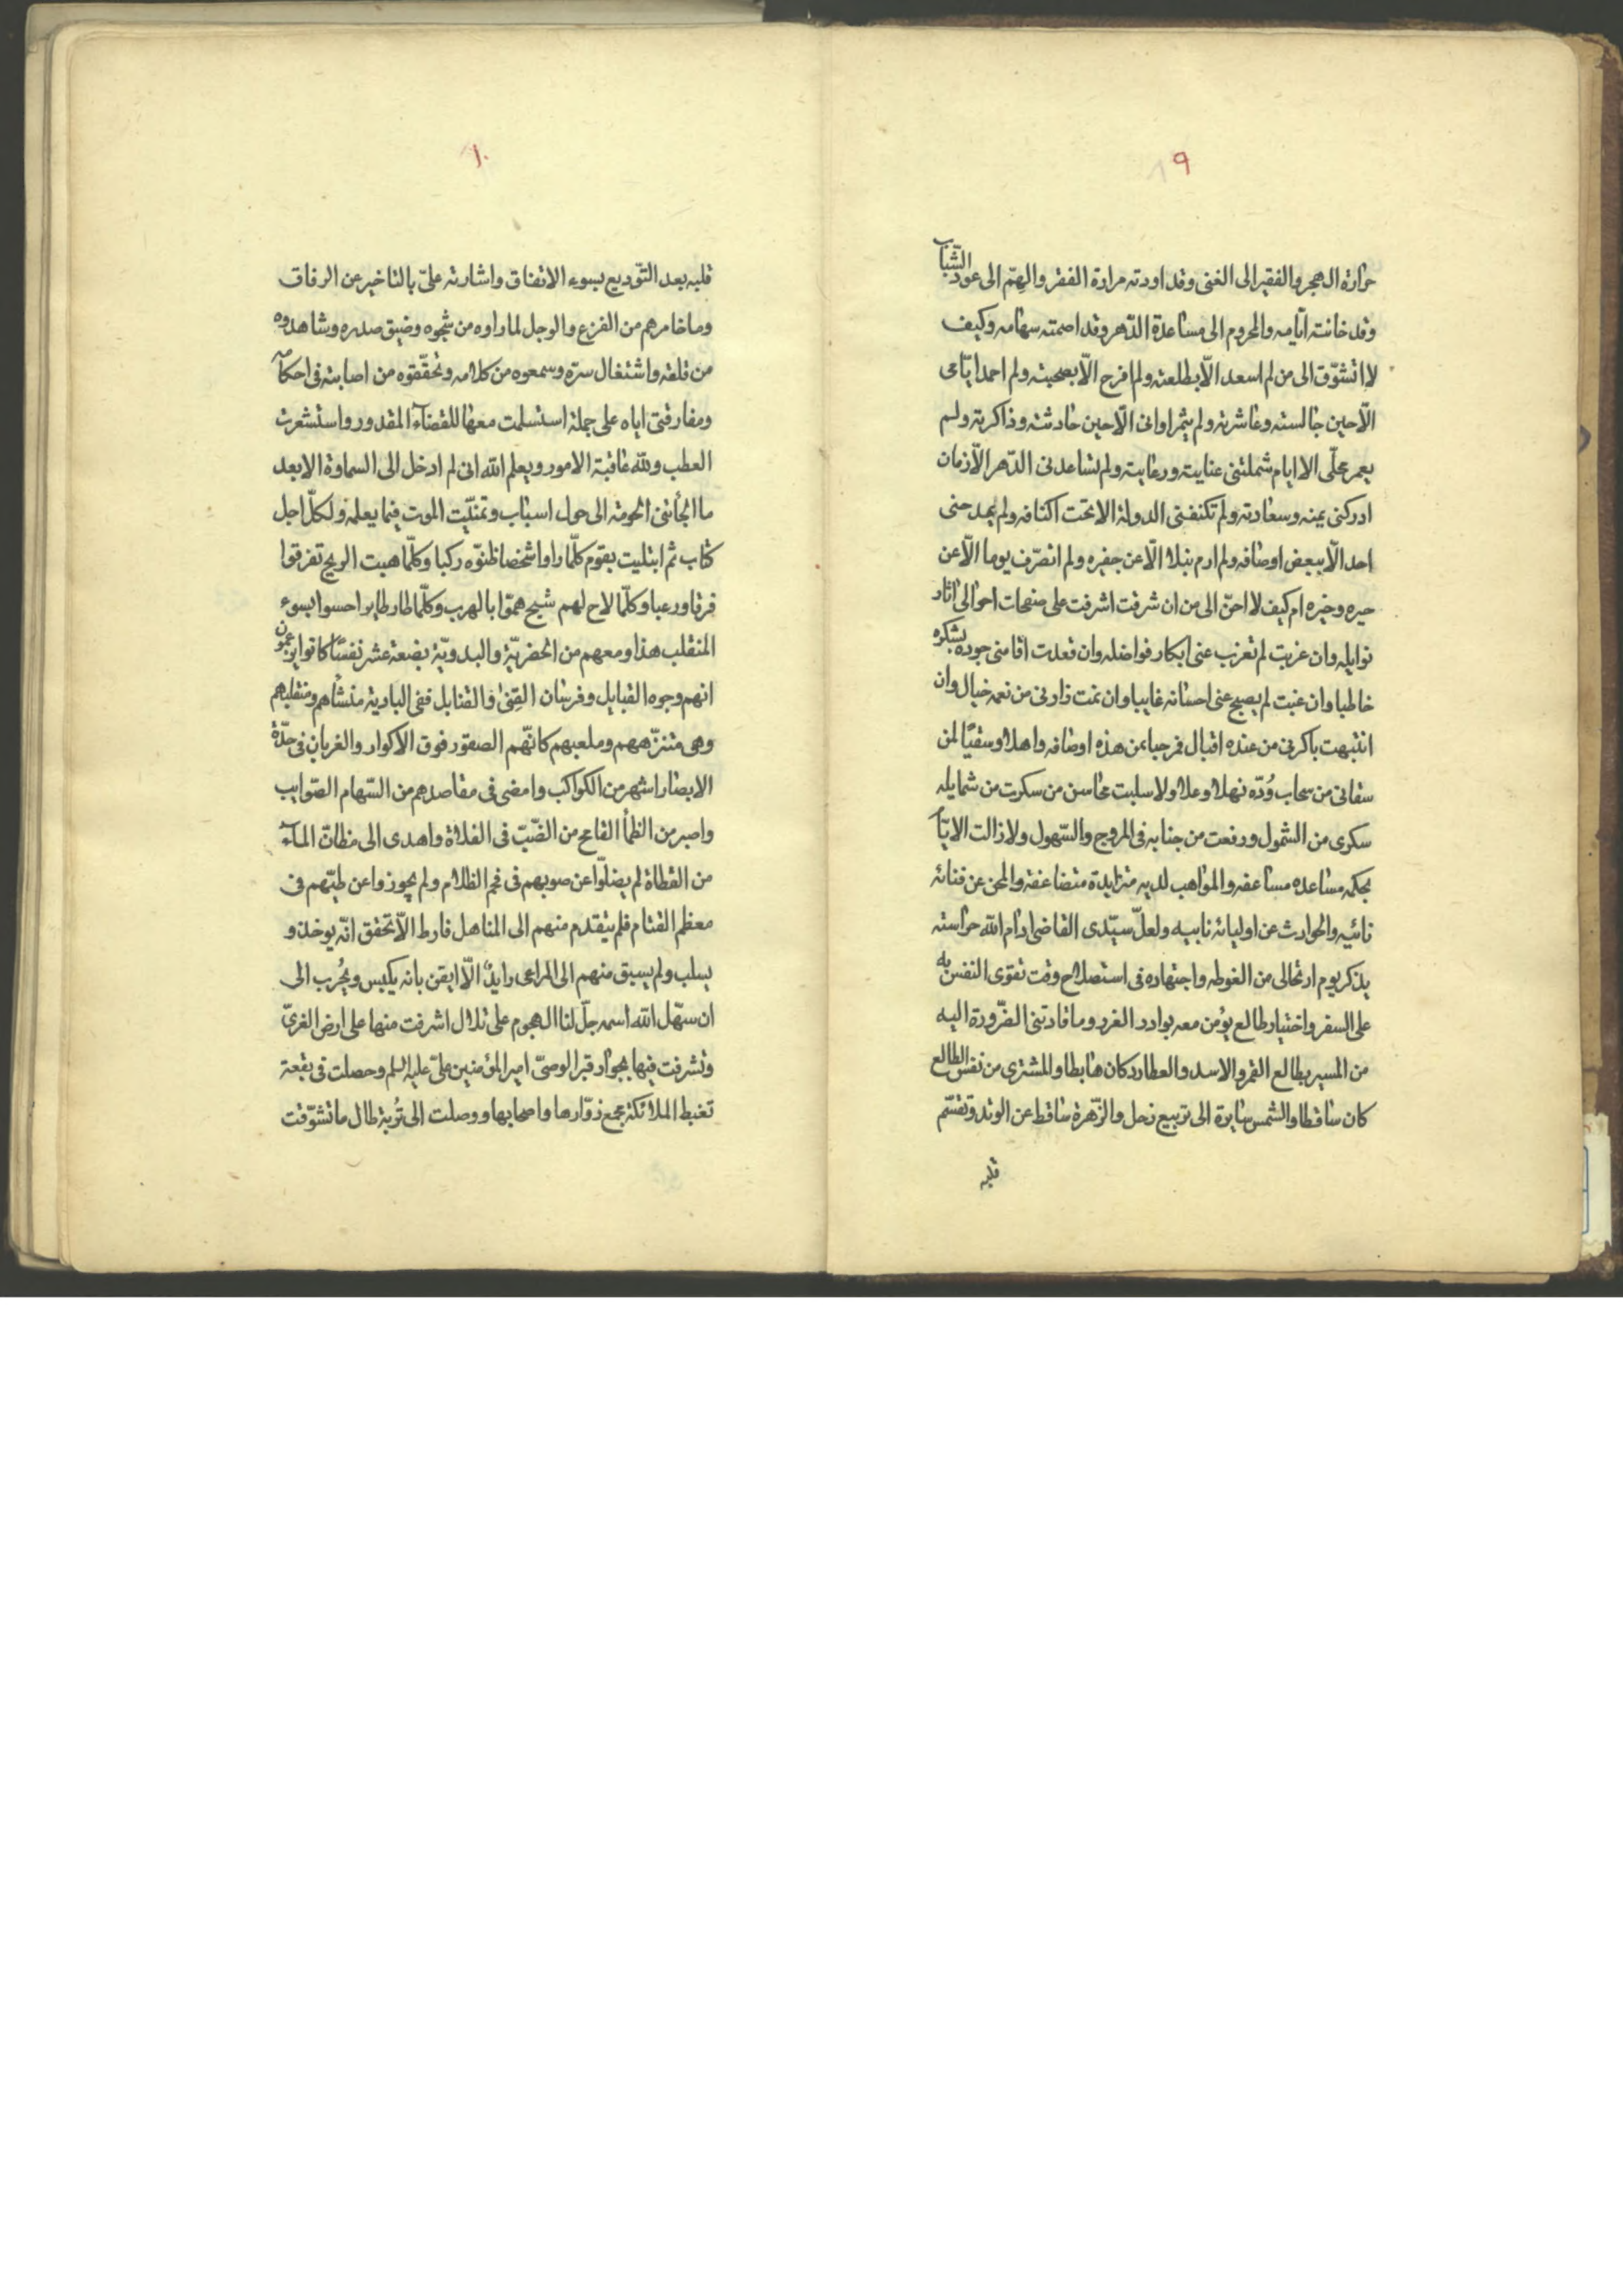 ٩
حرارة الهجر والفقير الى الغنى وقد اودته مرارة الفقر والهمّ الى عود الشّباب
وقد خانته ايّامه والمحروم الى مساعدة الدّهر وقد اصمته سهامه وكيف
لا اتشوّق الى من لم اسعد الّا بطلعته ولم افرح الّا بصحبته ولم احمد ايّامى
الّا حين جالسته وعاشرته ولم يثمر اوانى الّا حين حادثته وذاكرته ولم
يعمر محلّى الا ايام شملتنى عنايته ورعايته ولم تساعدنى الدّهر الّا زمان
ادركنى يمنه وسعادته ولم تكنفنى الدولة الا تحت اكنافه ولم يمدحنى
احد الّا ببعض اوصافه ولم ارم بنبلا الّا عن جفيره ولم اتصرّف يوما الّا عن
حيره وخيره ام كيف لا احنّ الى من ان شرقت اشرقت على صفحات احوالى اثار
نوايله وان غربت لم تعزب عنى ابكار فواضله وان قعدت اقامنى جوده بشكره
خاطبا وان غبت لم يصبح عنى احسانه غايبا وان نمت زارنى من نعمه خيال وان
انتبهت باكرنى من عنده اقبال فمرحبا بمن هذه اوصافه واهلا وسقيًا لمن
سقانى من سحاب وُدّه نهلا وعلا ولا سلبت محاسن من سكرت من شمايله
سكرى من الشمول ورتعت من جنابه فى المروج والسّهول ولا زالت الايّام
بحكمه مساعده مساعفه والمواهب لديه متزايدة متضاعفة والمحن عن فنائه
نائيه والحوادث عن اوليائه نابيه ولعلّ سيّدى القاضى ادام الله حراسته
يذكر يوم ارتحالى من الغوطه واجتهاده فى استصلاح وقت تقوى النفس به
على السفر واختيار طالع يؤمن معه بوادر الغرر وما قادتنى الضّرورة اليه
من المسير بطالع القمر والاسد والعطارد كان هابطا والمشترى من نفس الطالع
كان ساقطا والشمس سايرة الى تربيع زحل والزّهرة ساقط عن الوتد وتقسّم
قلبه
١٠
قلبه بعد التّوديع بسوء الاتفاق واشارته علىّ بالتاخير عن الرفاق
وما خامرهم من الفزع والوجل لما راوه من شجوه وضيق صدره وشاهدوه
من قلقه واشتغال سرّه وسمعوه من كلامه وتحقّقوه من اصابته فى احكامه
ومفارقتى اياه على جملة استسلمت معها للقضاء المقدور واستشعرت
العطب ولله عاقبة الامور ويعلم الله انى لم ادخل الى السماوة الا بعد
ما الجأتنى الحومة الى حول اسباب وتمنّيت الموت فيما يعلمه ولكلّ اجل
كتاب ثم ابتليت بقوم كلّما راوا شخصا ظنّوه ركبا وكلّما هبت الريح تفرقوا
فرقا ورعبا وكلّما لاح لهم شبح همّوا بالهرب وكلّما طار طاير احسوا بسوء
المنقلب هذا ومعهم من الحضريّة والبدويّة بضعة عشر نفسًا كانوا يزعمون
انهم وجوه القبايل وفرسان القنى والقنابل ففى البادية منشأهم ومتقلبهم
وهى متنزّههم وملعبهم كانّهم الصقور فوق الاكوار والغربان فى حدّة
الابصار اشهر من الكواكب وامضى فى مقاصدهم من السّهام الصّوايب
واصبر من الظمأ القامح من الضّبّ فى الفلاة واهدى الى مظانّ المآء
من القطاة لم يضلّوا عن صوبهم فى فحم الظلام ولم يجوزوا عن طيّهم فى
معظم القتام فلم يتقدم منهم الى المناهل فارط الّا تحقق انّه يوخذ و
يسلب ولم يسبق منهم الى المراعى رايدٌ الّا ايقن بانه يكبس ويُحرب الى
ان سهّل الله اسمه جلّ لنا الهجوم على تلال اشرفت منها على ارض الغرىّ
وتشرفت فيها بجوار قبر الوصىّ امير المؤمنين علىّ عليه السلم وحصلت فى بقعة
تغبط الملائكة مجمع زوّارها واصحابها ووصلت الى تُربة طال ما تشوّقت